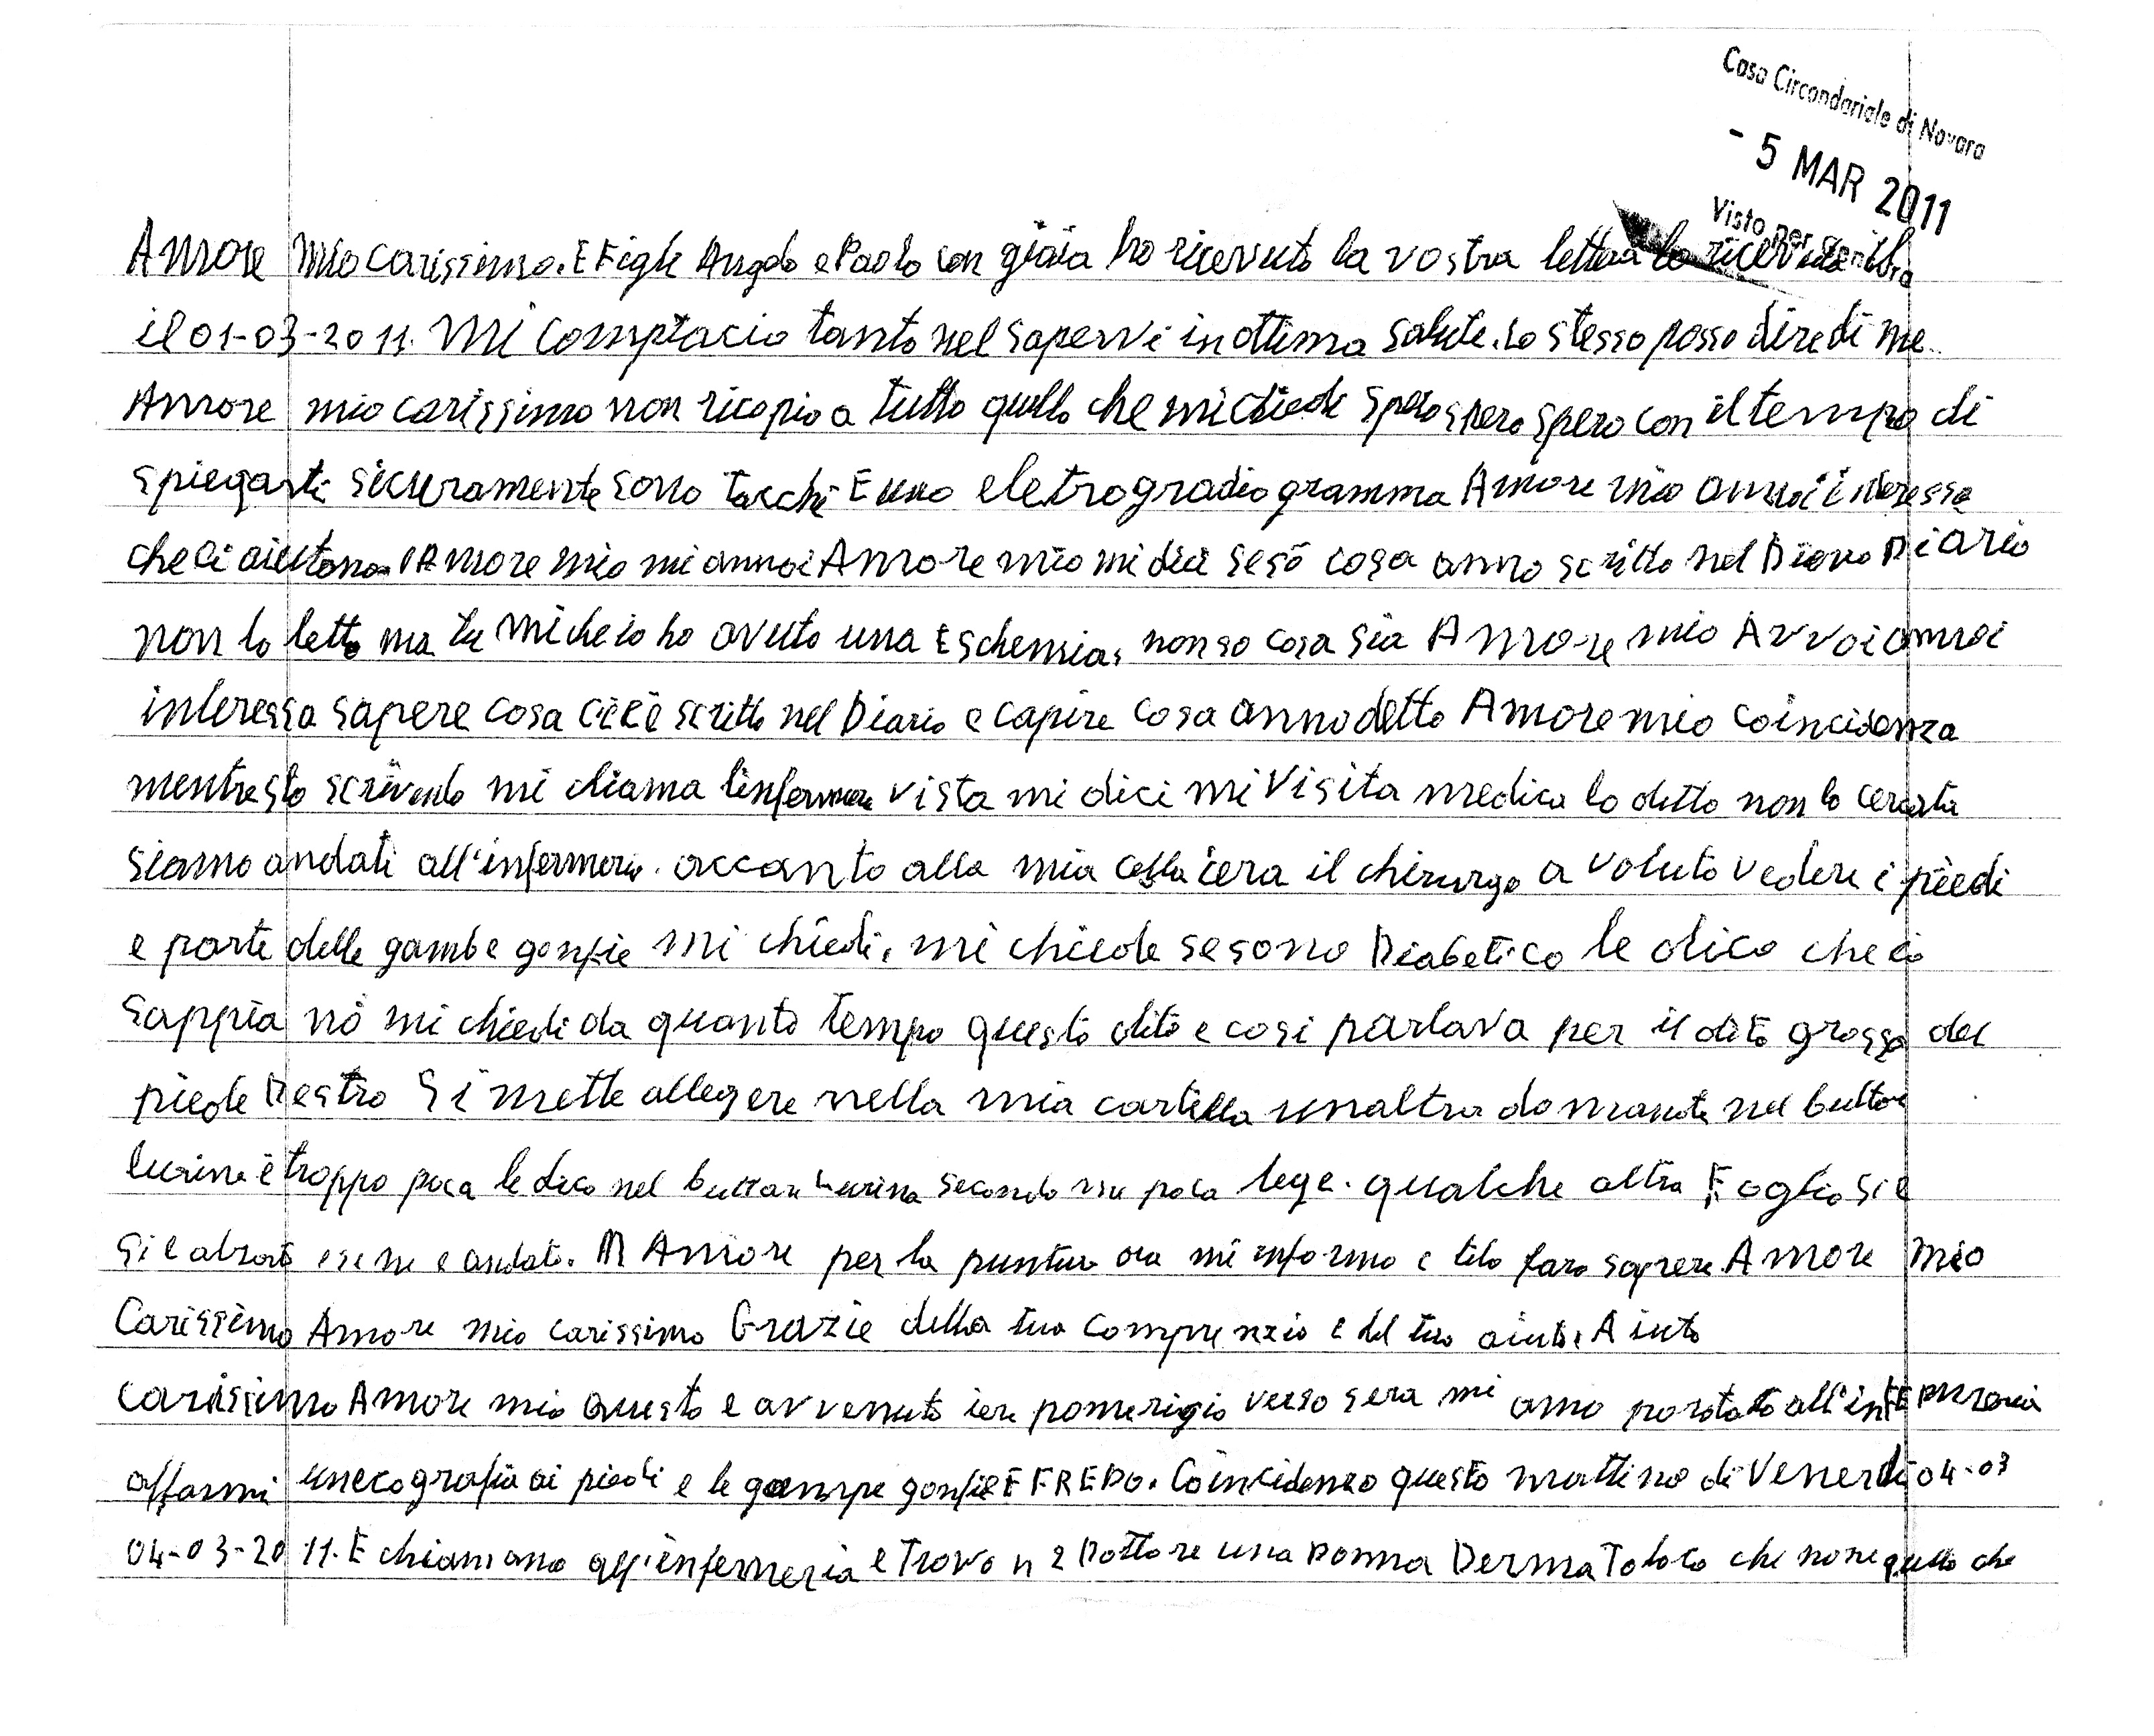 Casa Circondariale di Novara
- 5 MAR 2011
Visto per censura
Amore mio carissimo. E Figli Angelo e Paolo con gioia ho ricevuto la vostra lettera lo ricevuta
il 01-03-2011. Mi compiacio tanto nel sapervi in ottima salute. Lo stesso posso dire di me.
Amore mio carissimo non ricopio a tutto quello che mi chiede spero spero spero con il tempo di
spiegarti sicuramente sono tacchi E uno eletrogradiogramma Amore mio annoi interessa
che ci aiutono Amore mio mi annoi Amore mio mi dici se sò cosa anno scritto nel Diario
non lo letto ma tu mi che io ho avuto una Eschemia, non so cosa sia Amore mio Avvoi annoi
interessa sapere cosa c'è è scritto nel Diario e capire cosa anno detto Amore mio coincidenza
mentre sto scrivendo mi chiama l'infermiere vista mi dici mi Visita medica lo detto non lo cercata
siamo andati all'infermeria. accanto alla mia cella c'era il chirurgo a voluto vedere i piedi
e parte delle gambe gonfie mi chiedi. mi chiede se sono Diabetico le dico che io
sappia nò mi chiedi da quanto tempo questo dito e cosi parlava per il dito grosso del
piede Destro Si mette allegere nella mia cartella unaltra domande nel buttare
lurina è troppo poca le dico nel buttare Lurina secondo me poca lege. qualche altra Foglio si e
si e alzato e se ne e andato. Amore per la puntura ora mi informo e telo faro sapere. Amore mio
Carissimo Amore mio carissimo Grazie della tua comprenzio e del tuo aiuto. Aiuto
carissimo Amore mio Questo e avvenuto iere pomerigio verso sera mi anno porotato all'infermeria
affarmi unecografia ai piedi e le gampe gonfie E FREDO. Coincidenzo questo mattino di Venerdi 04-03
04-03-2011. E chiamano all'infermeria e Trovo n 2 Dottore una Donna DermaToloco che none quello che